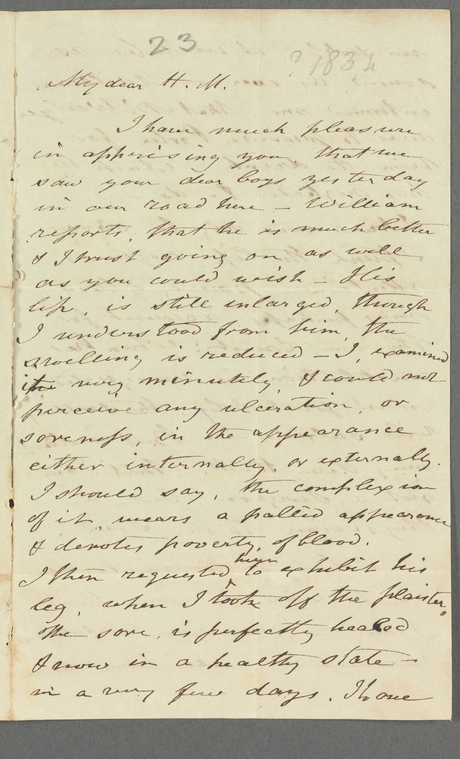 23
? 1834
My dear H. M.
I have much pleasure
in apprising you that we
saw your dear boys yesterday
in our road here — William
reports, that he is much better
& I trust going on as well
as you could wish — His
lip, is still inlarged though
I understood from him, the
swelling is reduced — I, examined
it very minutely, & could not
perceive any ulceration, or
soreness, in the appearance
either internally or externally.
I should say, the complexion
of it, wears a pallid appearance
& denotes poverty, of blood.
him
I then requested to exhibit his
leg, when I took off the plaister,
the sore, is perfectly healed
& now in a healthy state —
in a very few days. I hope